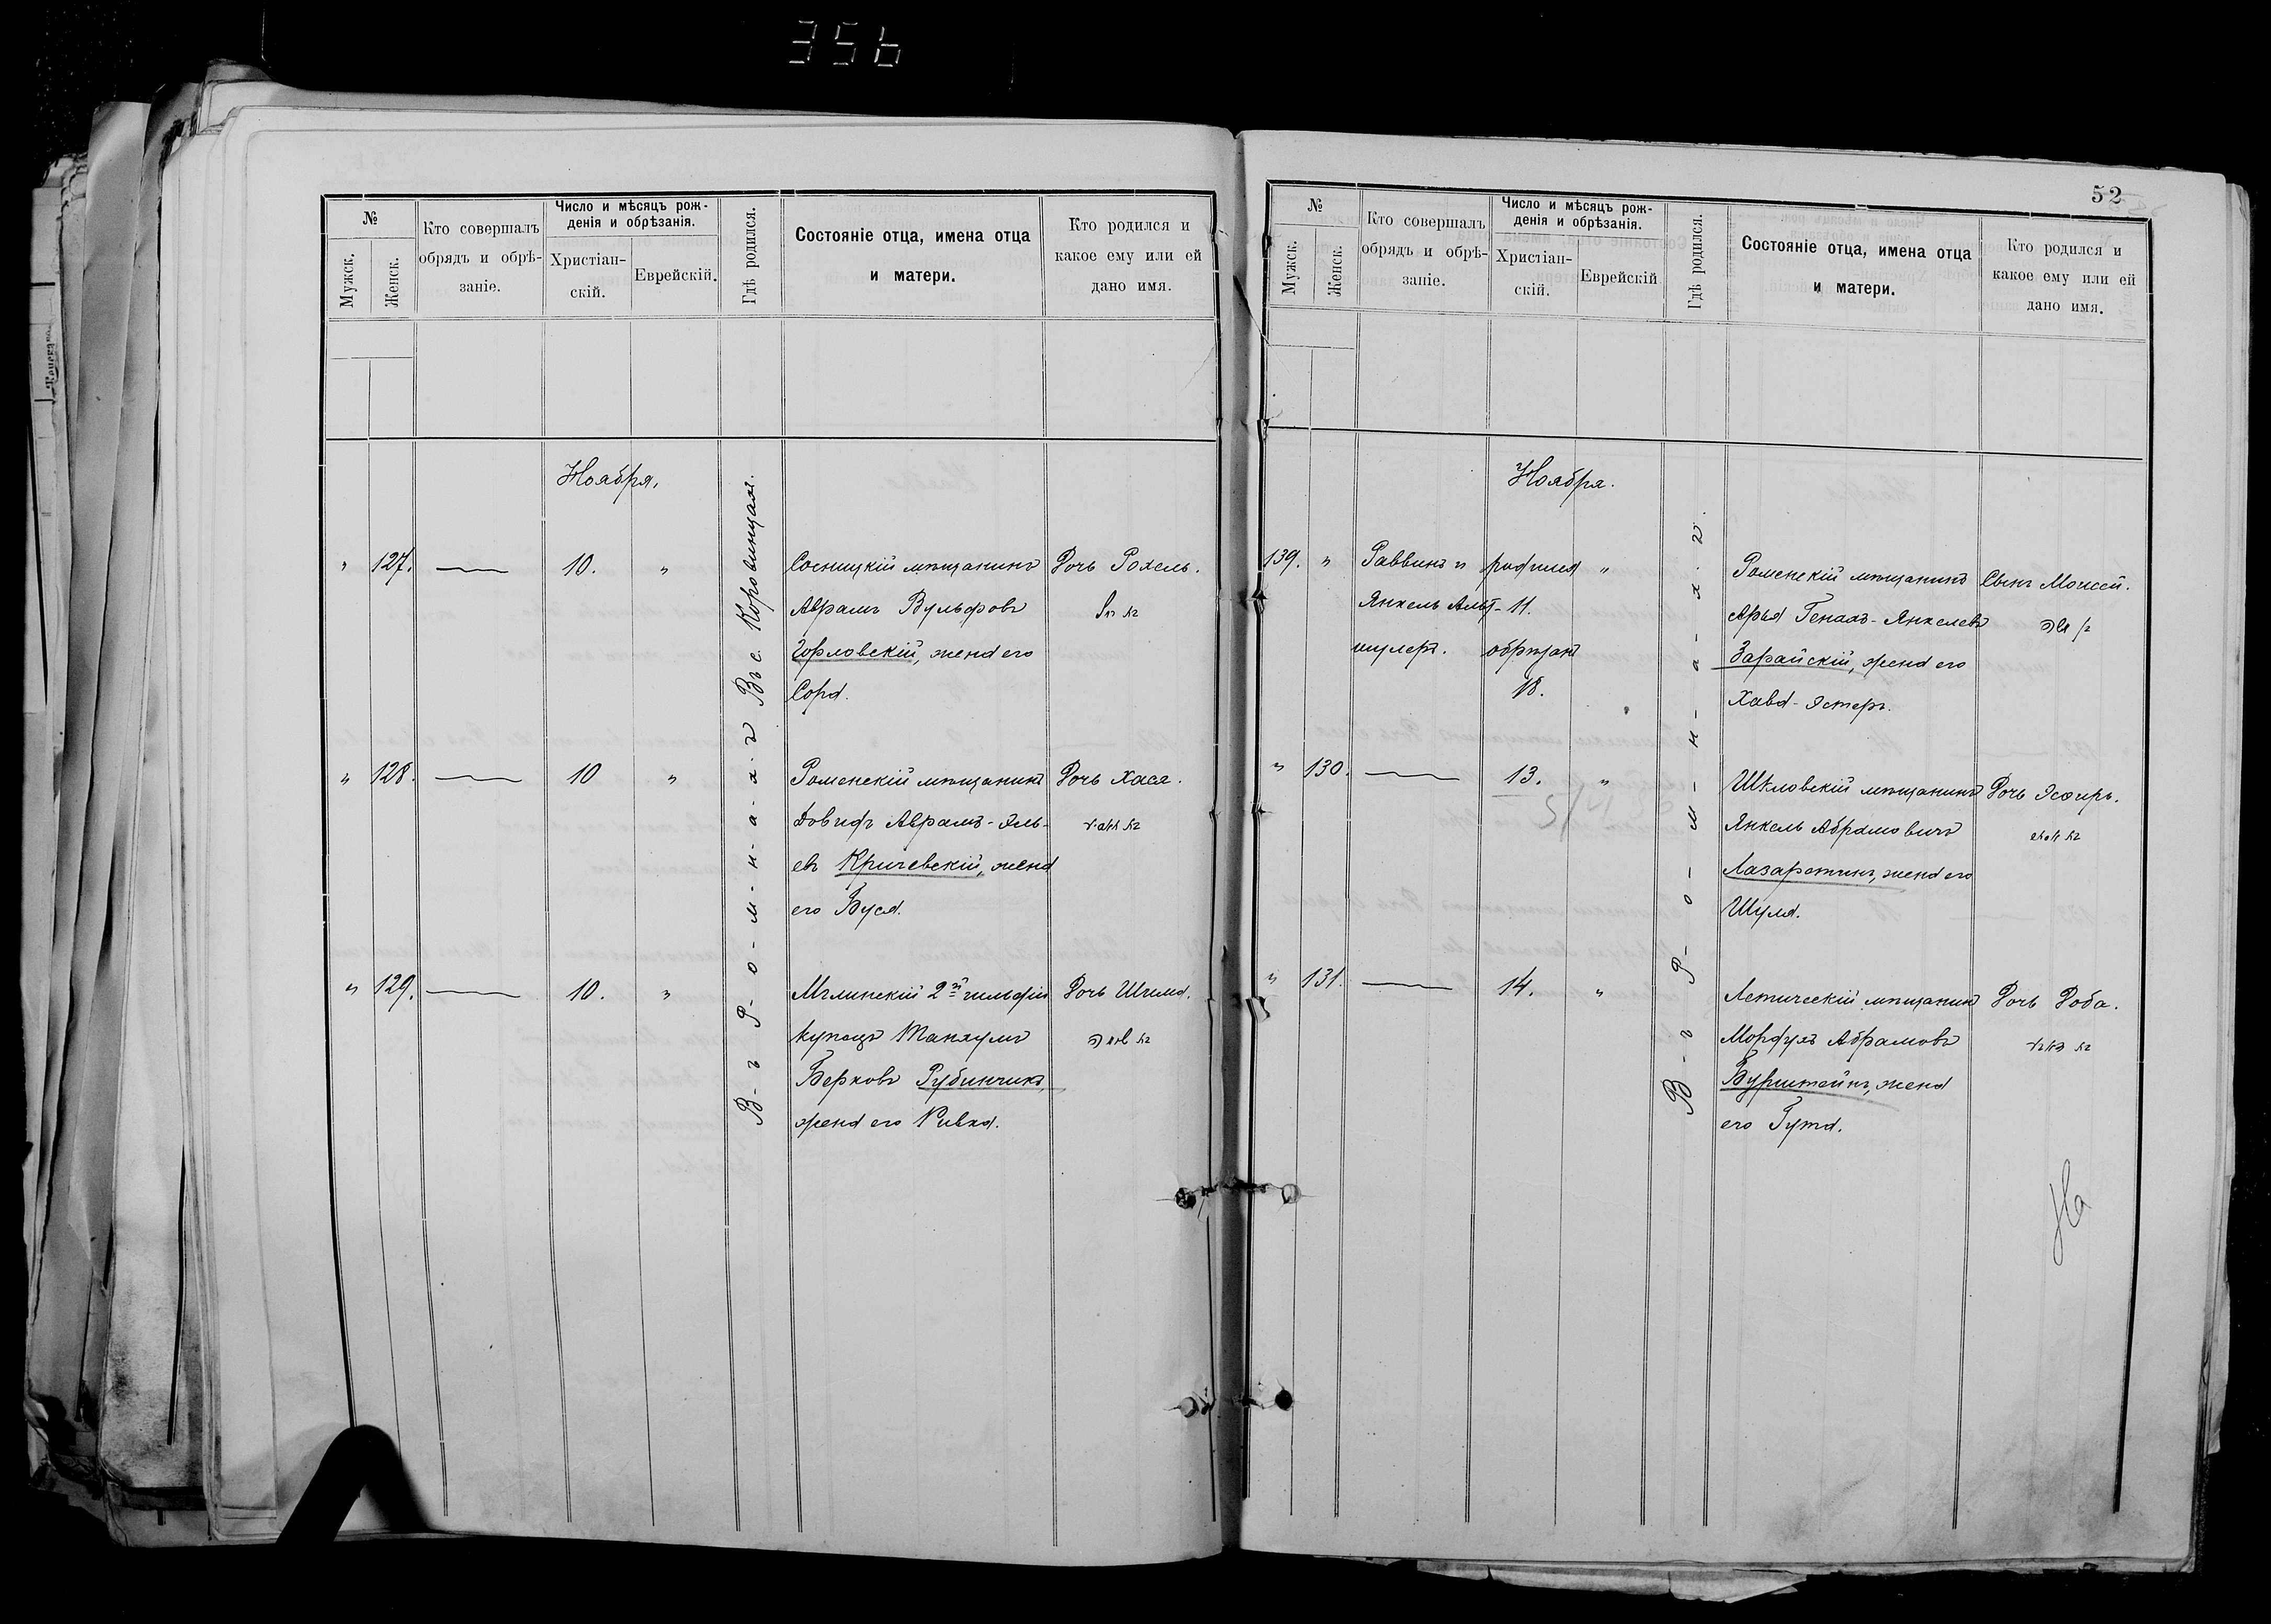 356
№
Мужск.
Женск.
Кто совершалъ
обрядъ и обрѣ-
заніе.
Число и мѣсяцъ рож-
денія и обрѣзанія.
Христіан-
скій.
Еврейскій.
Гдѣ родился.
Состояніе отца, имена отца
и матери.
Кто родился и
какое ему или ей
дано имя.
Ноября.
Въ с. Коровинцахъ.
В-ъ Р-о-м-н-а-х-ъ
„ 127. — 10. „
Сосницкій мѣщанинъ
Аврамъ Вульфовъ
Горловскій, жена его
Сора.
Дочь Рохель.
„ 128. — 10 „
Роменскій мѣщанинъ
Довидъ Аврамъ-Эль-
евъ Кричевскій, жена
его Буся.
Дочь Хася.
„ 129. — 10. „
Мглинскій 2й гильдіи
купецъ Танхумъ
Берковъ Рубинчикъ,
жена его Ривка.
Дочь Шима.
52
№
Мужск.
Женск.
Кто совершалъ
обрядъ и обрѣ-
заніе.
Число и мѣсяцъ рож-
денія и обрѣзанія.
Христіан-
скій.
Еврейскій
Гдѣ родился.
Состояніе отца, имена отца
и матери.
Кто родился и
какое ему или ей
дано имя.
Ноября.
В-ъ Р-о-м-н-а-х-ъ.
139. „
Раввинъ и
Янкель Альт-
шулеръ.
родился „
11.
обрѣзанъ
18.
Роменскій мѣщанинъ
Арья Генахъ-Янкелевъ
Зарайскій, жена его
Хава-Эстеръ.
Сынъ Моисей.
„ 130. — 13. „
Шкловскій мѣщанинъ
Янкель Абрамовичъ
жена его
Шула.
Дочь Эсфирь.
„ 131. — 14. „
мѣщанинъ
Мордухъ Абрамовъ
Бурштейнъ, жена
его Гута.
Дочь Доба.